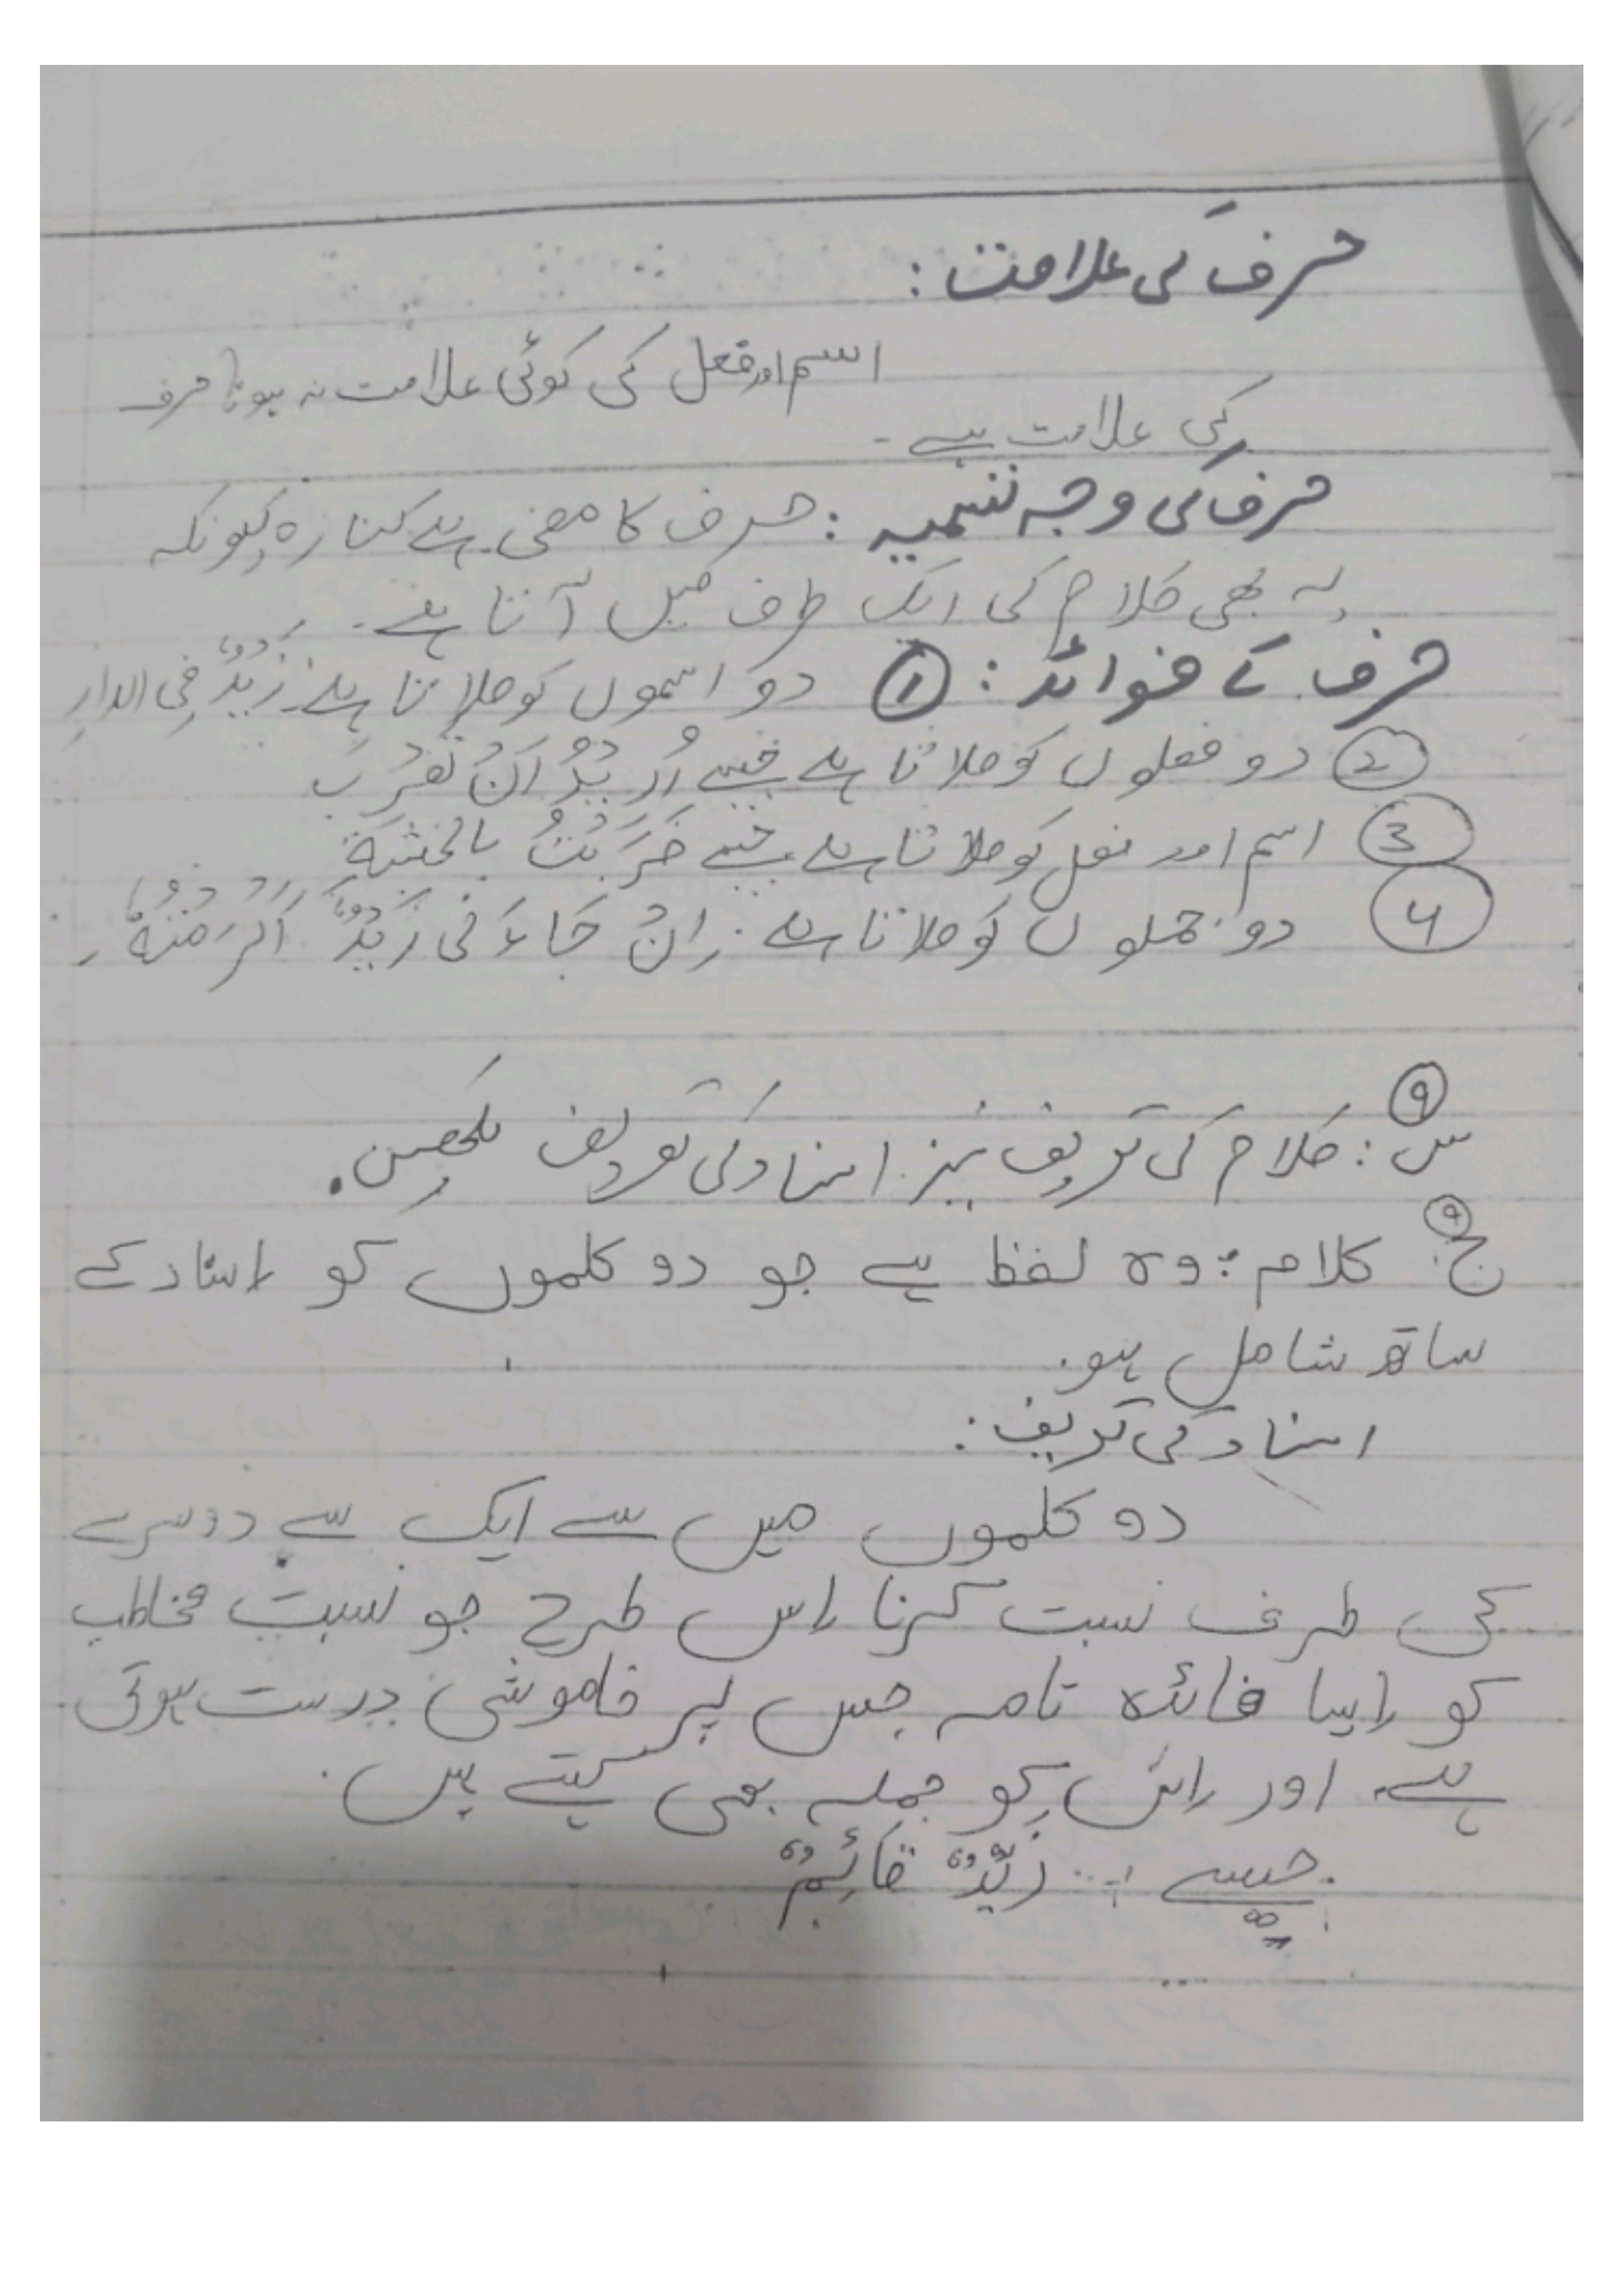 حرف کی علامت:
اسم اور فعل کی کوئی علامت نہ ہونا حرف
کی علامت ہے۔
حرف کی وجہ تسمیہ: حرف کا معنی ہے کنارہ کیونکہ
یہ بھی کلام کی ایک طرف میں آتا ہے۔
حرف کے فوائد: ① دو اسموں کو ملاتا ہے۔ زَیْدٌ فِی الدارِ
② دو فعلوں کو ملاتا ہے جیسے اُرِیْدُ اَنْ تَضْرِبَ
③ اسم اور فعل کو ملاتا ہے جیسے ضَرَبْتُ بالخشبَةِ
④ دو جملوں کو ملاتا ہے۔ اِنْ جَاءَنی زَیْدٌ اَکْرَمْتُهٗ۔
⑨
س: کلام کی تعریف نیز اسناد کی تعریف لکھیں۔
⑨
ج: کلام: وہ لفظ ہے جو دو کلموں کو اسناد کے
ساتھ شامل ہو۔
اسناد کی تعریف:
دو کلموں میں سے ایک سے دوسرے
کی طرف نسبت کرنا اس طرح جو نسبت مخاطب
کو ایسا فائدہ تامہ جس پر خاموشی درست ہوتی
ہے۔ اور اس کو جملہ بھی کہتے ہیں۔
جیسے: زَیْدٌ قَائِمٌ